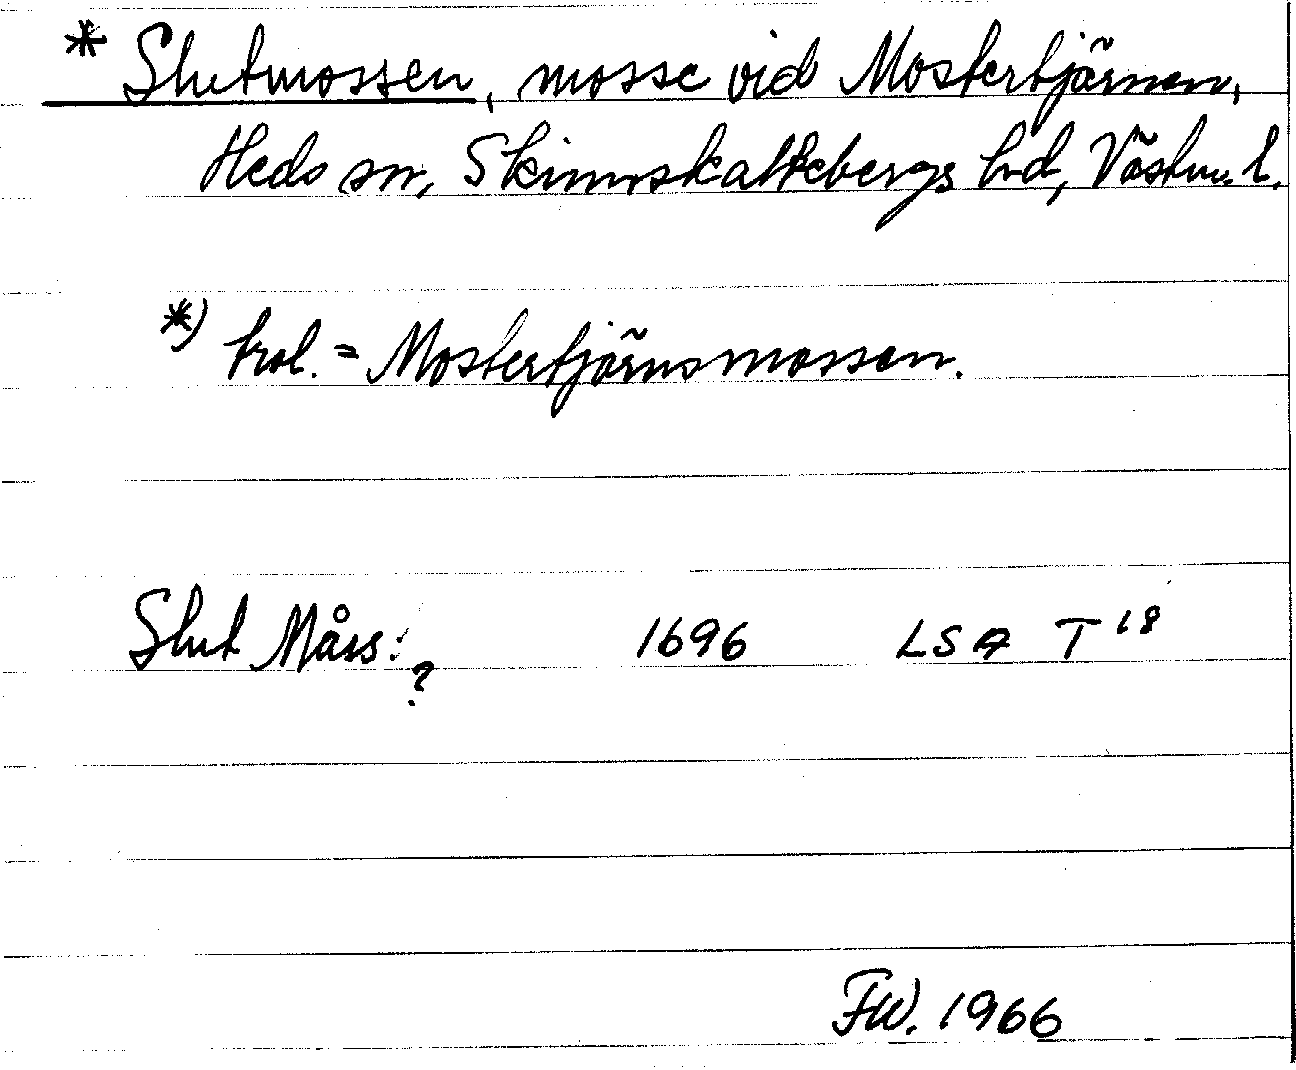 * Slutmossen, mosse vid Mostertjärnen,
Heds sn, Skinnskattebergs hd, Västm. l.
*) trol. = Mostertjärnsmossen.
Slut Måss: ? 1696 LSA T 18
FW. 1966